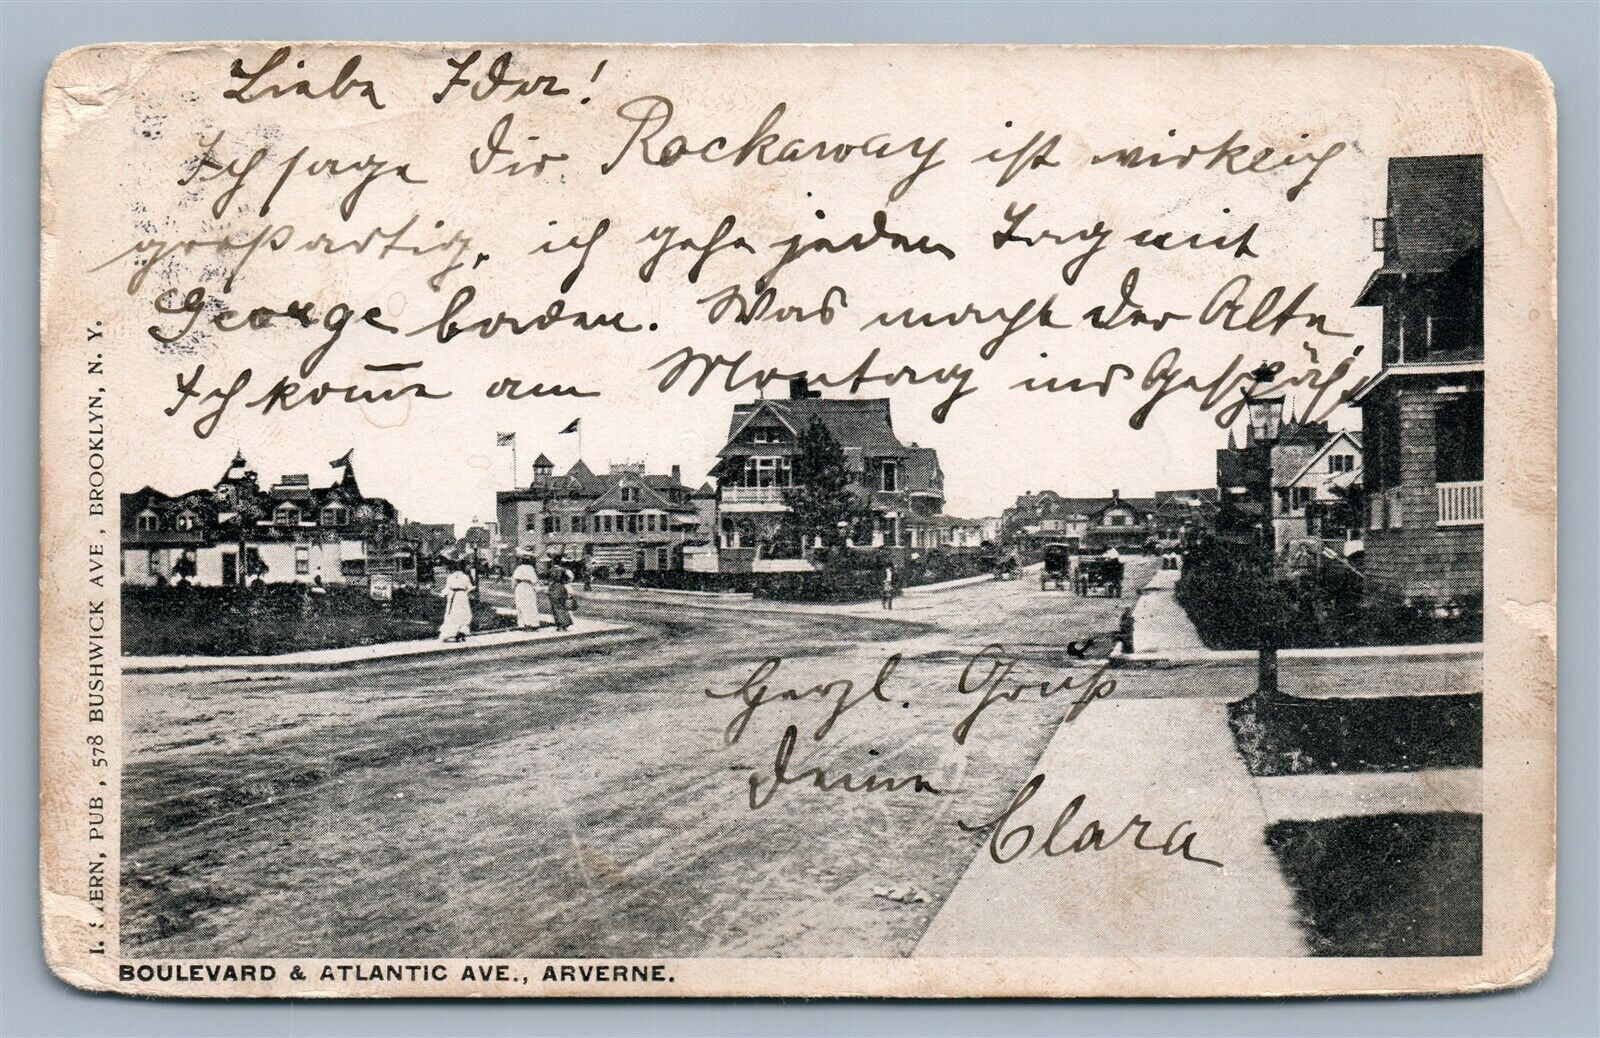 Liebe Ider!
Ich sage Dir Rockaway ist wirklich
großartig, ich gehe jeden Tag mit
George baden. Was macht der Alte,
Ich kom̅e am Montag ins Geschäft
Herzl. Gruß
Deine
Clara
I. STERN, PUB., 578 BUSHWICK AVE., BROOKLYN, N. Y.
BOULEVARD & ATLANTIC AVE., ARVERNE.